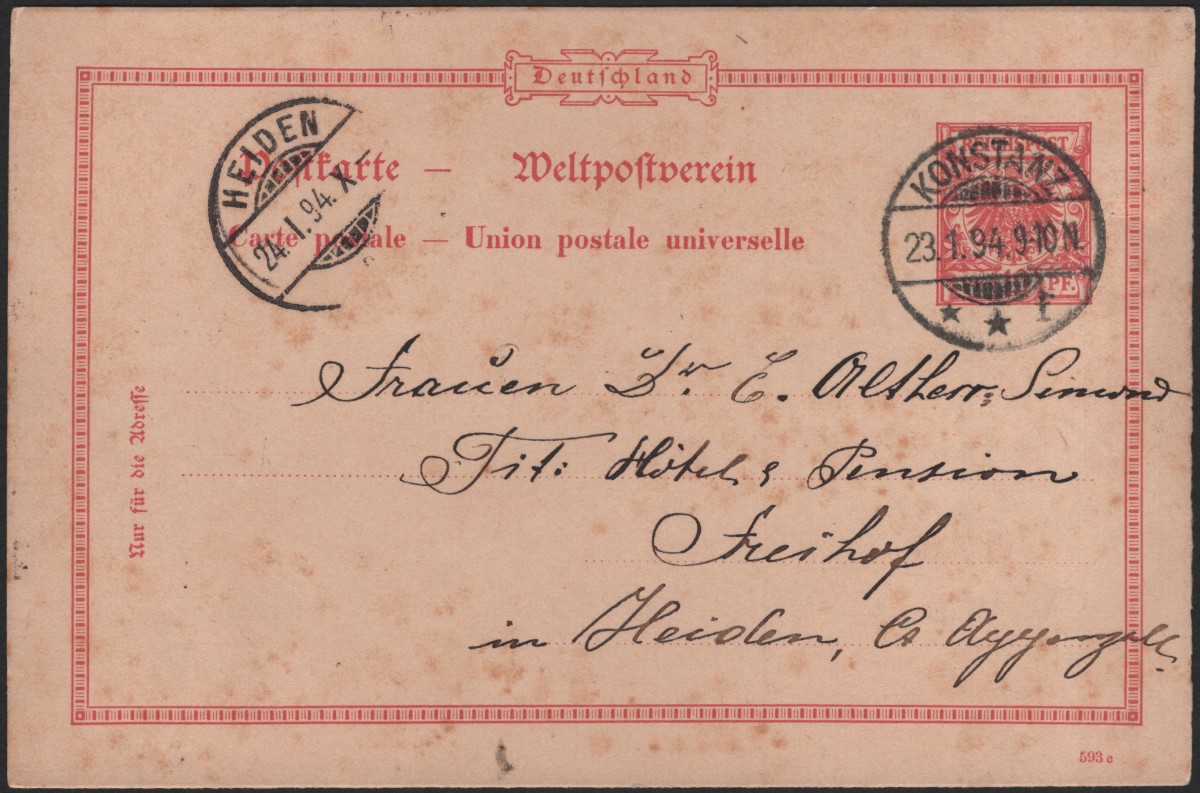 Deutschland
Postkarte — Weltpostverein
Carte postale — Union postale universelle
HEIDEN
24.I.94.X–
KONSTANZ
23.1.94.9-10N.
★ ★ 1
REICHSPOST
10 PF.
Nur für die Adresse
Frauen Dr E. Altherr=Simond
Tit: Hôtel & Pension
Freihof
in Heiden, Ct Appenzell.
593 e